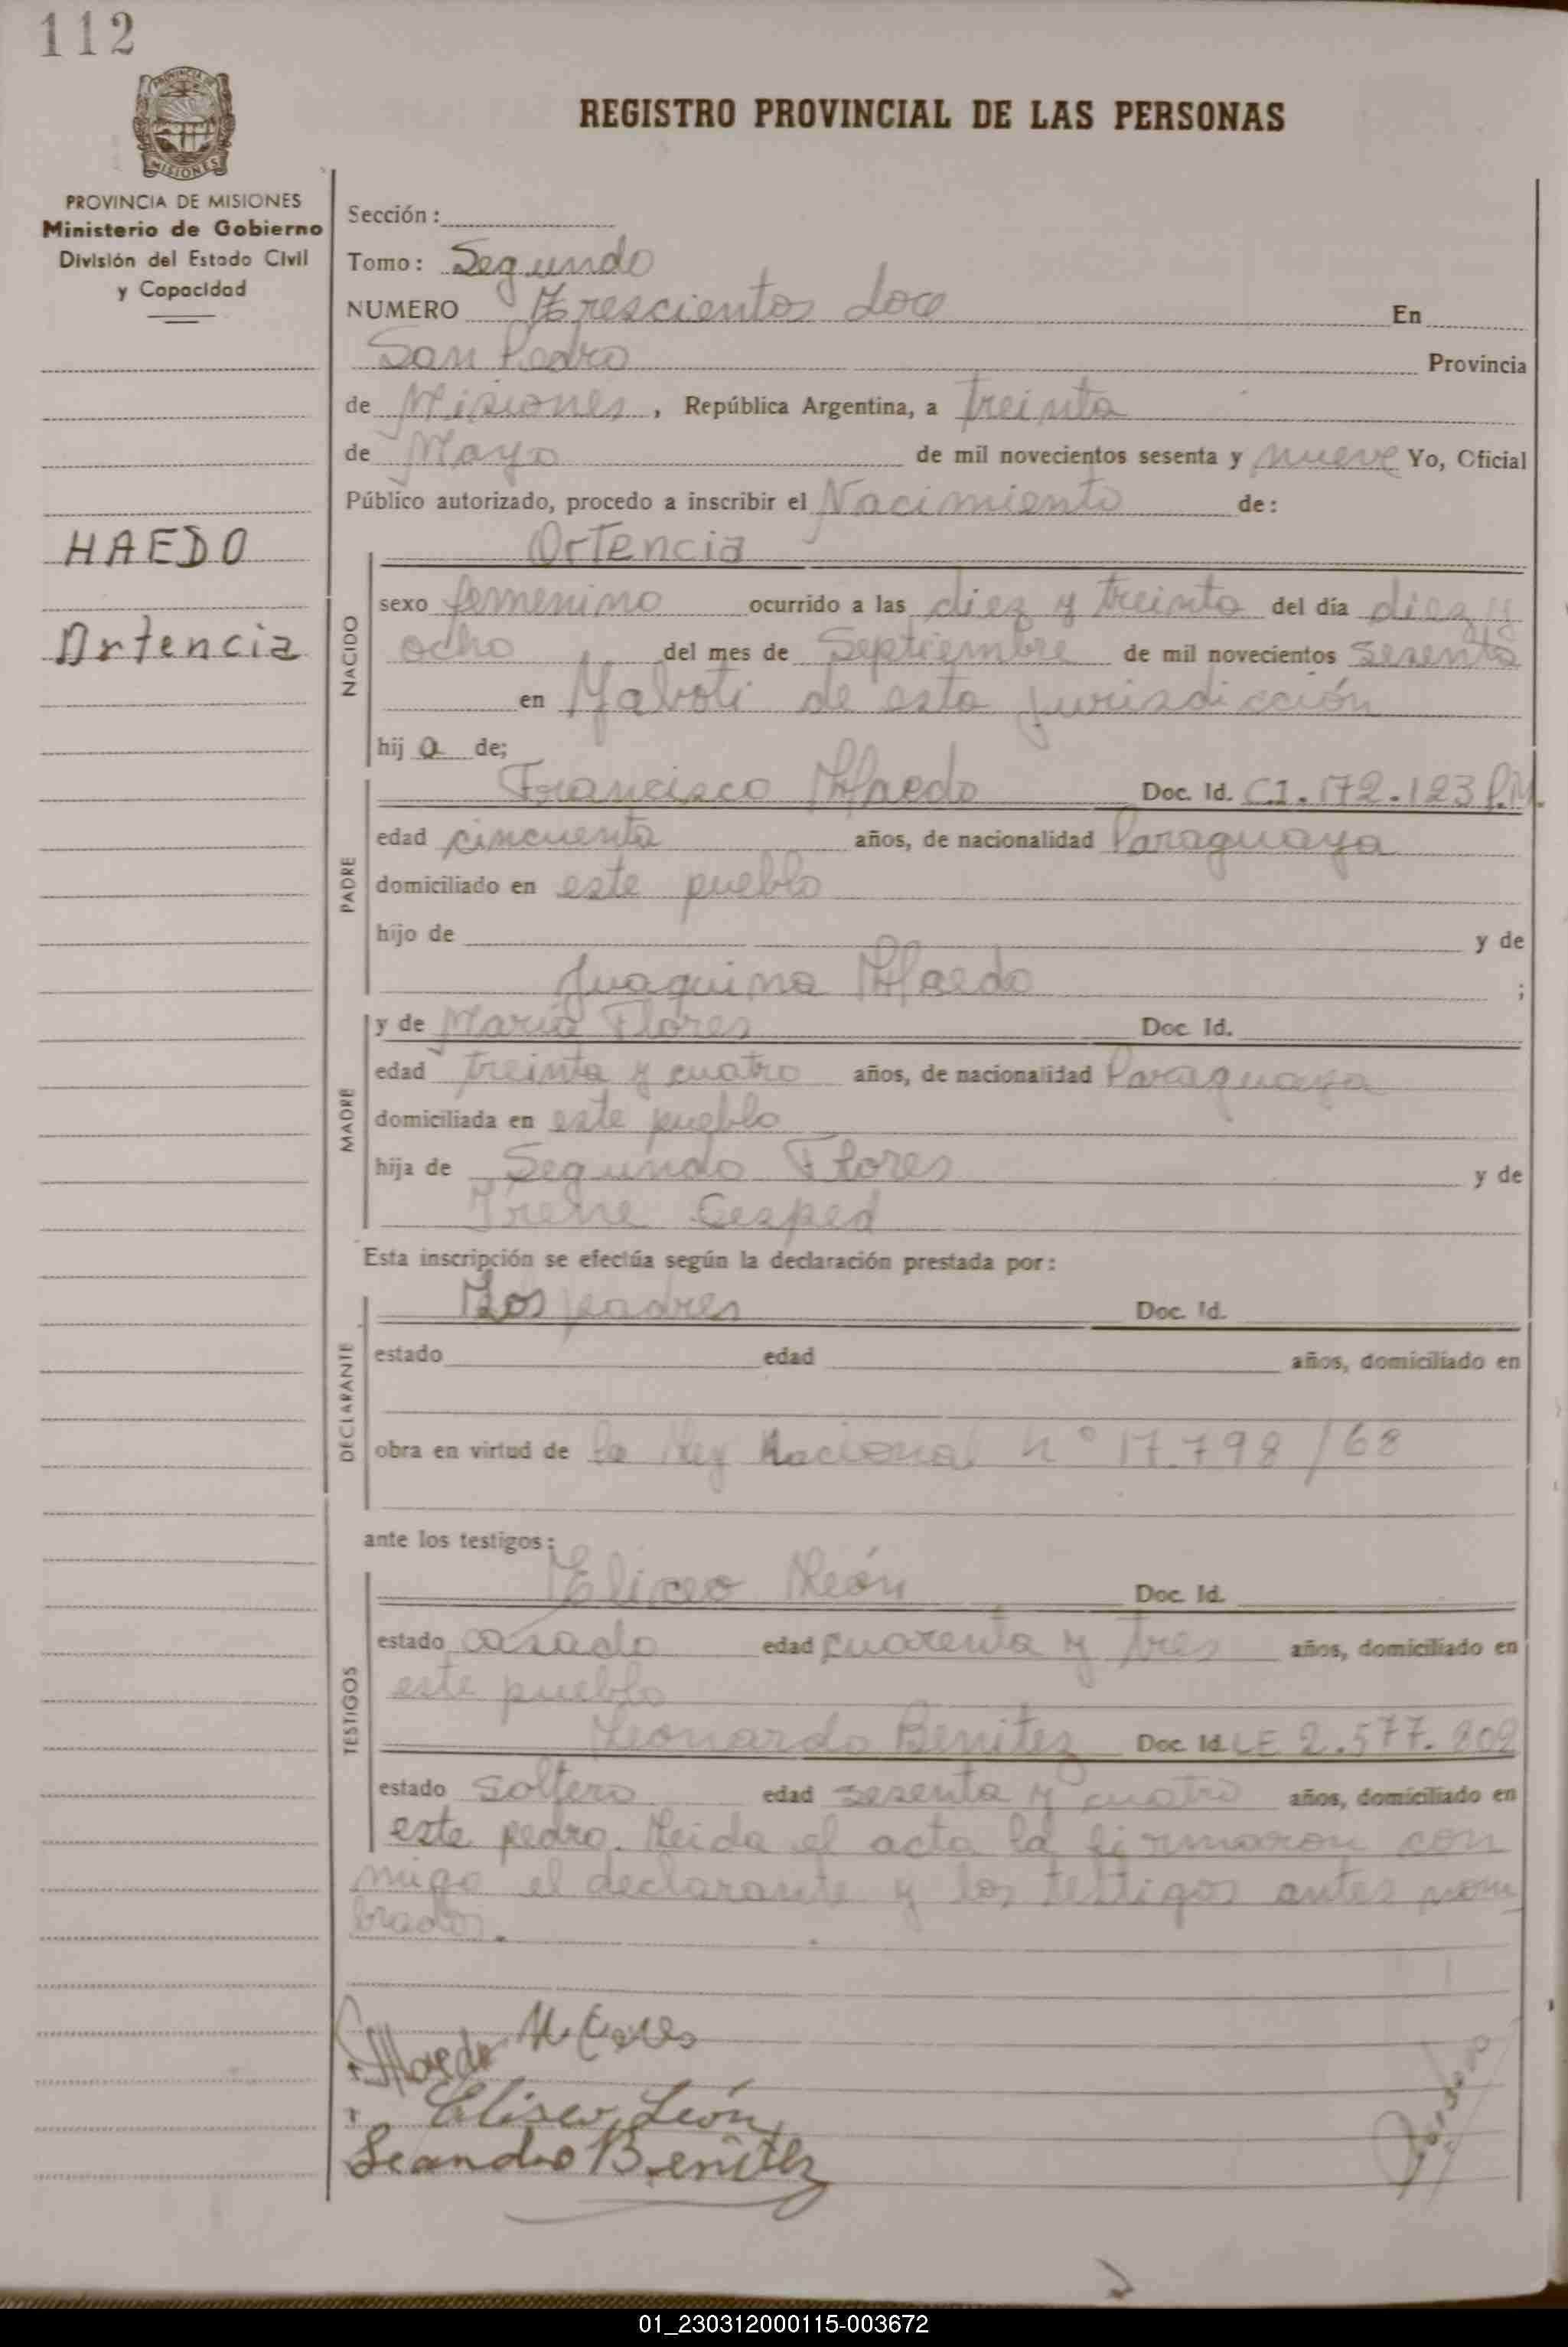 112
MISIONES
PROVINCIA DE MISIONES
Ministerio de Gobierno
División del Estado Civil
y Capacidad
HAEDO
Ortencia
REGISTRO PROVINCIAL DE LAS PERSONAS
Sección:
Tomo: Segundo
NUMERO Trescientos doce En
San Pedro Provincia
de Misiones, República Argentina, a treinta
de Mayo de mil novecientos sesenta y nueve Yo, Oficial
Público autorizado, procedo a inscribir el Nacimiento de:
Ortencia
NACIDO
sexo femenino ocurrido a las diez y treinta del día diez y
ocho del mes de Septiembre de mil novecientos sesenta
en Yaboti de esta jurisdicción
hija de;
Francisco Haedo Doc. Id. C.I. 172.123 P.M.
PADRE
edad cincuenta años, de nacionalidad Paraguaya
domiciliado en este pueblo
hijo de y de
Juaquina Haedo ;
y de María Flores Doc Id.
MADRE
edad treinta y cuatro años, de nacionalidad Paraguaya
domiciliada en este pueblo
hija de Segundo Flores y de
Irene Cesped
Esta inscripción se efectúa según la declaración prestada por:
Los padres Doc. Id.
DECLARANTE
estado edad años, domiciliado en
obra en virtud de la ley Nacional n° 17.798/68
ante los testigos:
Eliceo León Doc. Id.
TESTIGOS
estado casado edad cuarenta y tres años, domiciliado en
este pueblo
Leonardo Benitez Doc. Id. LE 2.577.202
estado Soltero edad sesenta y cuatro años, domiciliado en
este pedro. Leida el acta la firmaron con
migo el declarante y los testigos antes nom
brados.
Haedo
Eliseo León
Leandro Benitez
01_230312000115-003672